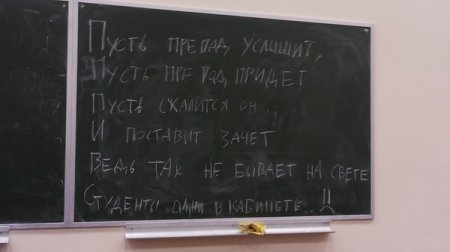 Пусть препад, услишит,
Пусть препад, придет
Пусть сжалится он...
И поставит зачет
Ведь так не бывает на свете
Студенты одни в кабинете...